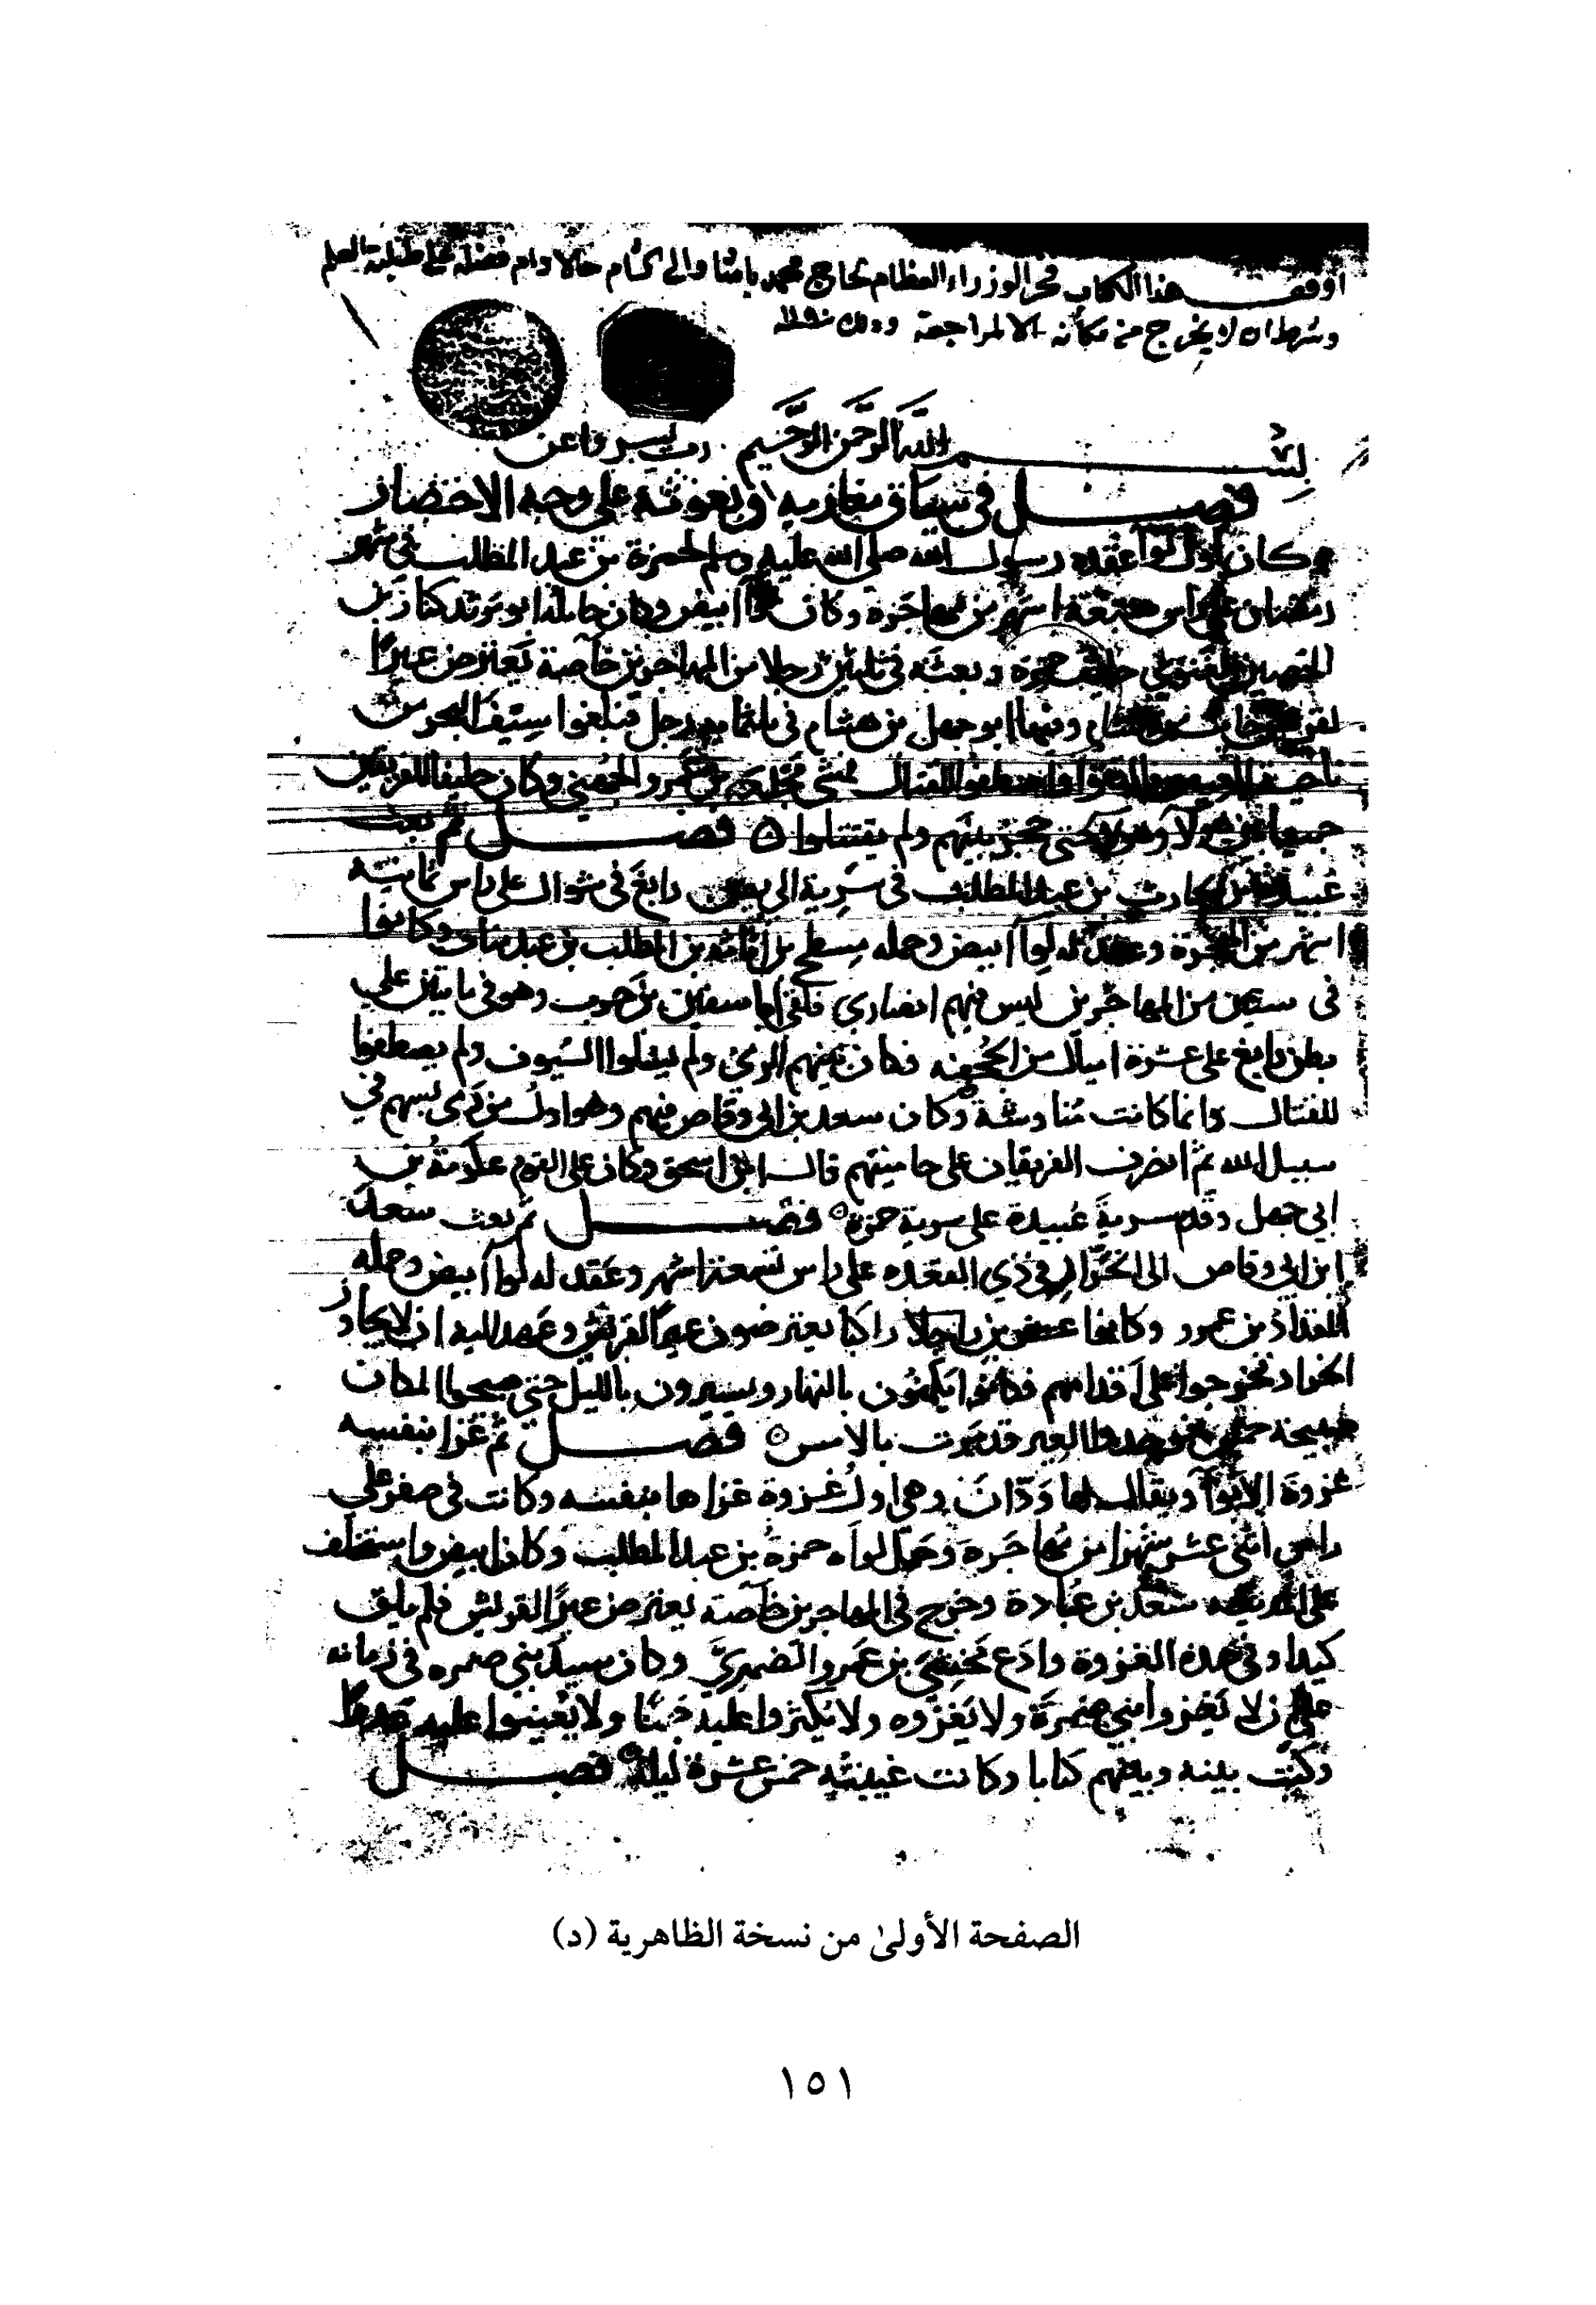 اوقف هذا الكتاب فخر الوزراء العظام الحاج محمد باشا والى الشام حالا دام فضله على طلبة العلم
وشرط ان لا يخرج من مكانه الا لمراجعة وذلك
بسم الله الرحمن الرحيم رب يسر واعن
فصل فى سياق مغازيه وبعوثه على وجه الاختصار
وكان اول لوا عقده رسول الله صلى الله عليه وسلم لحمزة بن عبد المطلب فى شهر
رمضان على راس سبعة اشهر من مهاجره وكان لوا ابيض وكان حامله ابو مرثد كناز بن
الحصين الغنوي حليف حمزة وبعثه فى ثلثين رجلا من المهاجرين خاصة يعترض عيرا
لقريش جات من الشام وفيها ابو جهل بن هشام فى ثلثمايه رجل فبلغوا سيف البحر من
ناحية العيص والتقوا واصطفوا للقتال فمشى مجدي بن عمرو الجهني وكان حليفا للفريقين
جميعا بين هولا وهولا حتى حجز بينهم ولم يقتتلوا ٥ فصل ثم بعث
عبيدة بن الحارث بن عبد المطلب فى سرية الى بطن رابغ فى شوال على راس ثمانية
اشهر من الهجرة وعقد له لوآ ابيض وحمله مسطح بن اثاثه بن المطلب بن عبد مناف وكانوا
فى ستين من المهاجرين ليس فيهم انصاري فلقى ابا سفين بن حرب وهو فى مايتين على
بطن رابغ على عشرة اميال من الجحفه فكان بينهم الرمي ولم يسلوا السيوف ولم يصطفوا
للقتال وانما كانت مناوشة وكان سعد بن ابى وقاص فيهم وهو اول من رمى بسهم في
سبيل الله ثم انصرف الفريقان على حاميتهم قال ابن اسحق وكان على القوم عكرمة بن
ابي جهل وقدم سرية عبيدة على سرية حمزة ٥ فصل ثم بعث سعد
ابن ابي وقاص الى الخرار في ذي القعده على راس تسعة اشهر وعقد له لوآ ابيض وحمله
المقداد بن عمرو وكانوا عشرين راكبا يعترضون عيرا لقريش وعهد اليه ان لا يجاوز
الخرار فخرجوا على اقدامهم فكانوا يكمنون بالنهار ويسيرون بالليل حتى صبحوا المكان
صبيحة خمس فوجدوا العير قد مرت بالامس ٥ فصل ثم غزا بنفسه
غزوة الابوآ ويقال لها ودان وهى اول غزوة غزاها بنفسه وكانت فى صفر على
راس اثنى عشر شهرا من مهاجره وحمل لواه حمزة بن عبد المطلب وكان ابيض واستخلف
على المدينه سعد بن عبادة وخرج فى المهاجرين خاصة يعترض عيرا لقريش فلم يلق
كيدا وفى هذه الغزوة وادع مخشي بن عمرو الضمري وكان سيد بنى ضمره فى زمانه
على ان لا تغزوا بني ضمرة ولا يغزوه ولا يكثروا عليه جمعا ولا يعينوا عليه عدوا
وكتب بينه وبينهم كتابا وكانت غيبته خمس عشرة ليلة ٥ فصل
الصفحة الأولىٰ من نسخة الظاهرية (د)
١٥١